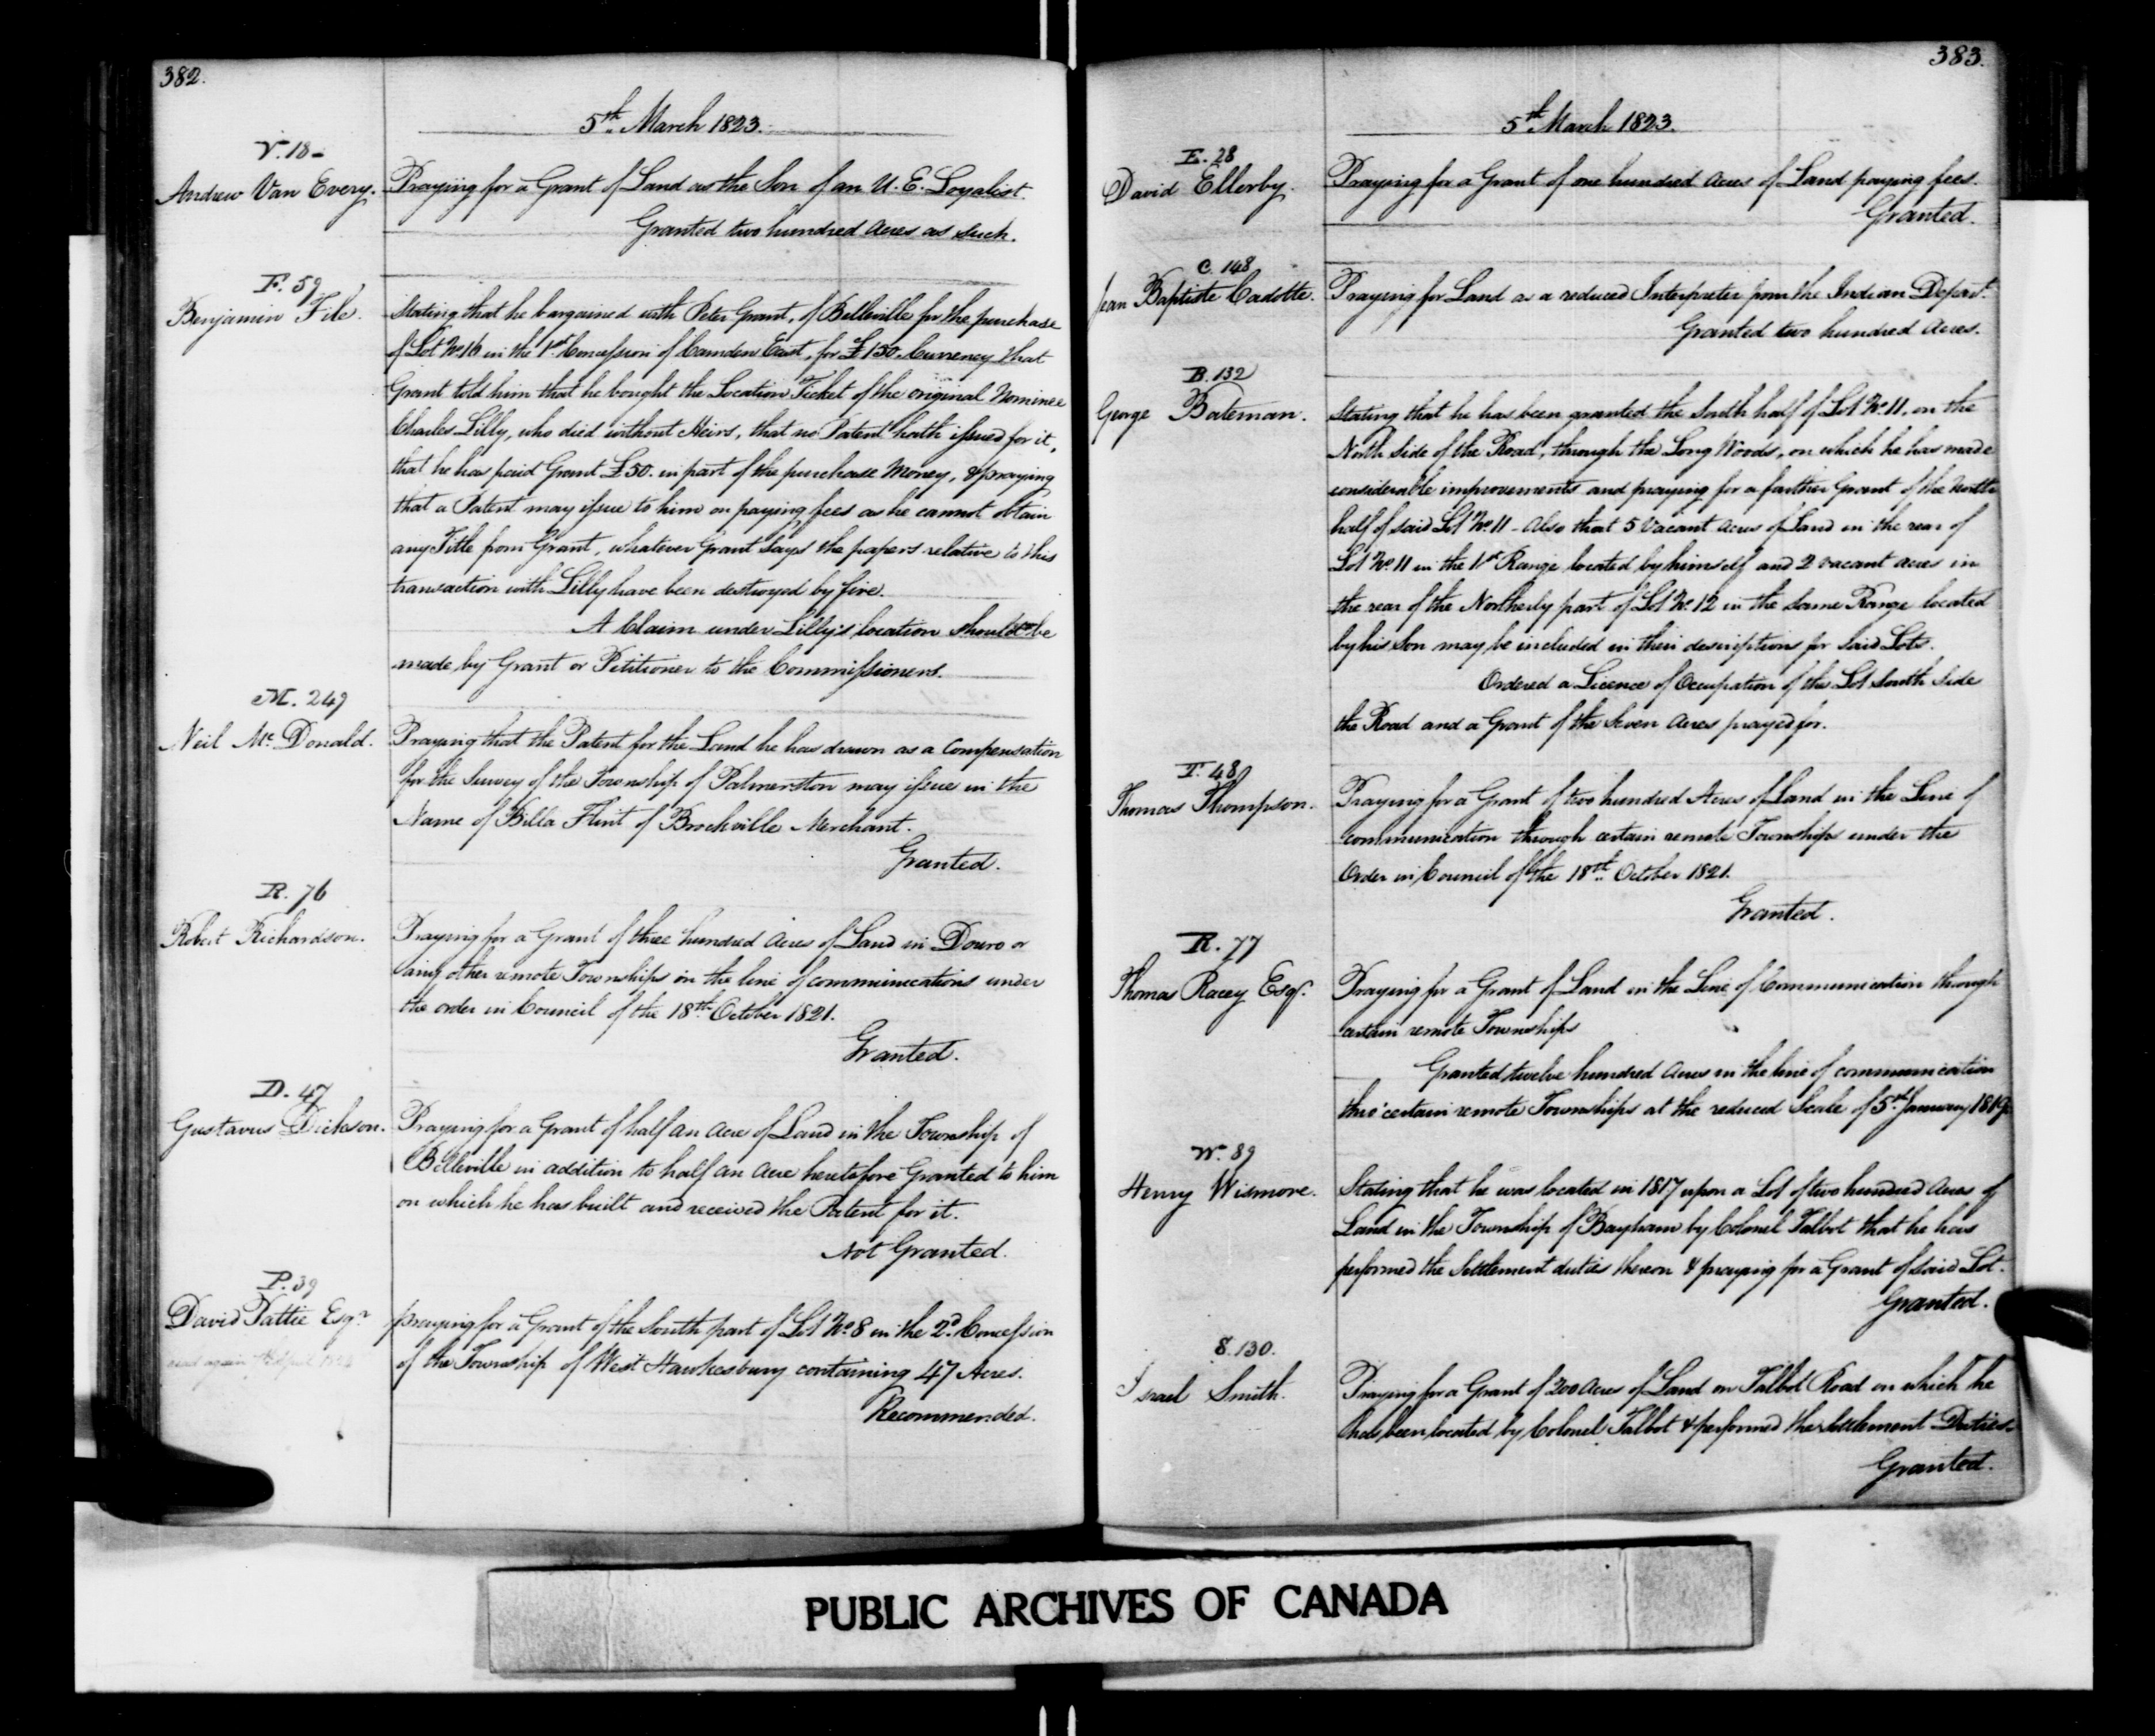 382.
5th March 1823.
V. 18-
Andrew Van Every. Praying for a Grant of Land as the Son of an U. E. Loyalist.
Granted two hundred Acres as such.
F. 59
Benjamin File. Stating that he bargained with Peter Grant, of Belleville for the purchase
of Lot No. 16 in the 1st Concession of Camden East, for £150. Currency that
Grant told him that he bought the Location Ticket of the original Nominee
Charles Lilly, who died without Heirs, that no Patent hath issued for it,
that he has paid Grant £50. in part of the purchase Money, & praying
that a Patent may issue to him on paying fees as he cannot obtain
any Title from Grant, whatever Grant Says the papers relative to this
transaction with Lilly have been destroyed by fire.
A Claim under Lilly's location should be
made by Grant or Petitioner to the Commissioners.
M. 249
Neil Mc Donald. Praying that the Patent for the Land he has drawn as a Compensation
for the Survey of the Township of Palmerston may issue in the
Name of Billa Flint of Brockville Merchant.
Granted.
R. 76
Robert Richardson. Praying for a Grant of three hundred Acres of Land in Douro or
any other remote Townships in the line of communications under
the order in Council of the 18th October 1821.
Granted.
D. 47
Gustavus Dickson. Praying for a Grant of half an Acre of Land in the Township of
Belleville in addition to half an Acre heretofore Granted to him
on which he has built and received the Patent for it.
Not Granted.
P. 39
David Pattie Esqr. praying for a Grant of the South part of Lot No 8 in the 2d. Concession
read again
of the Township of West Hawkesbury containing 47 Acres.
Recommended.
383.
5th March 1823.
E. 28
David Ellerby. Praying for a Grant of one hundred Acres of Land paying fees.
Granted.
C. 148
Jean Baptiste Cadotte. Praying for Land as a reduced Interpreter from the Indian Depart.
Granted two hundred Acres.
B. 132
George Bateman. Stating that he has been granted the South half of Lot No. 11. on the
North Side of the Road, through the Long Woods, on which he has made
considerable improvements and praying for a farther Grant of the North
half of said Lot No. 11 - Also that 5 Vacant Acres of Land in the rear of
Lot No 11 in the 1st Range located by himself and 2 vacant acres in
the rear of the Northerly part of Lot No 12 in the Same Range located
by his Son may be included in their descriptions for Said Lots.
Ordered a Licence of Occupation of the Lot South Side
the Road and a Grant of the Seven Acres prayed for.
T. 48
Thomas Thompson. Praying for a Grant of two hundred Acres of Land in the Line of
communication through certain remote Townships under the
Order in Council of the 18th October 1821.
Granted.
R. 77
Thomas Racey Esqr. Praying for a Grant of Land in the Line of Communication through
certain remote Townships
Granted twelve hundred Acres in the line of communication
thro' certain remote Townships at the reduced Scale of 5th January 1819.
W. 89
Henry Wismore. Stating that he was located in 1817 upon a Lot of two hundred Acres of
Land in the Township of Bayham by Colonel Talbot that he has
performed the Settlement duties thereon & praying for a Grant of said Lot.
Granted.
S. 130.
Israel Smith. Praying for a Grant of 200 Acres of Land on Talbot Road on which he
has been located by Colonel Talbot & performed the Settlement Duties.
Granted.
PUBLIC ARCHIVES OF CANADA